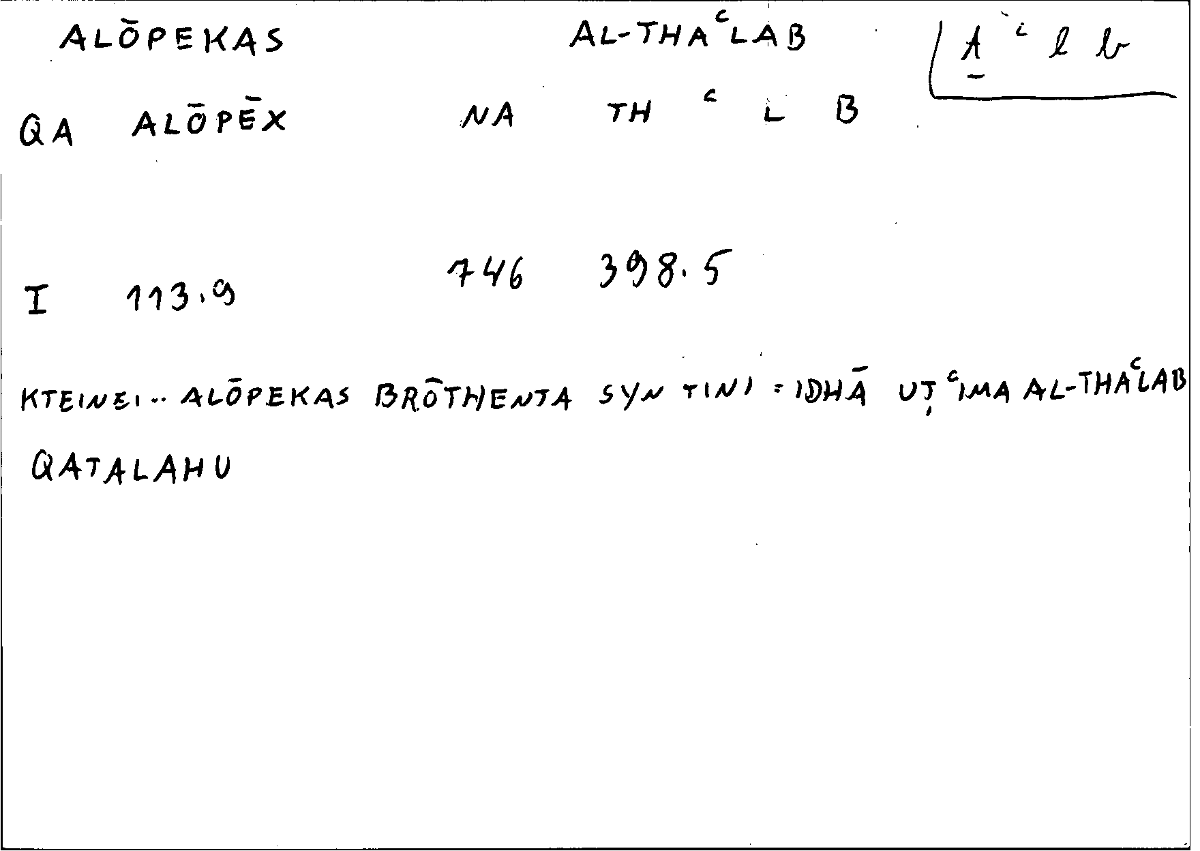 ALŌPEKAS AL-THAᶜLAB t̲ ᶜ l b
QA ALŌPĒX NA TH ᶜ L B
I 113.9 746 398.5
KTEINEI.. ALŌPEKAS BRŌTHENTA SYN TINI = IDHĀ UṬᶜIMA AL-THAᶜLAB
QATALAHU